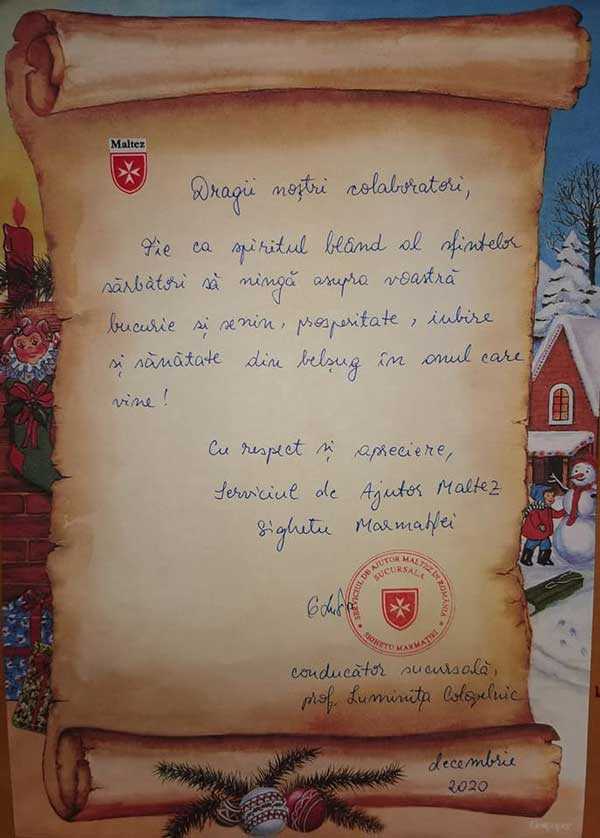 Maltez
Dragii noștri colaboratori,
Fie ca spiritul blând al sfintelor
sărbători să ningă asupra voastră
bucurie și senin, prosperitate, iubire
și sănătate din belșug în anul care
vine!
Cu respect și apreciere,
Serviciul de Ajutor Maltez
Sighetu Marmației
SERVICIUL DE AJUTOR MALTEZ ÎN ROMÂNIA
SUCURSALA
SIGHETU MARMAȚIEI
conducător sucursală,
prof. Luminița Colopelnic
decembrie
2020